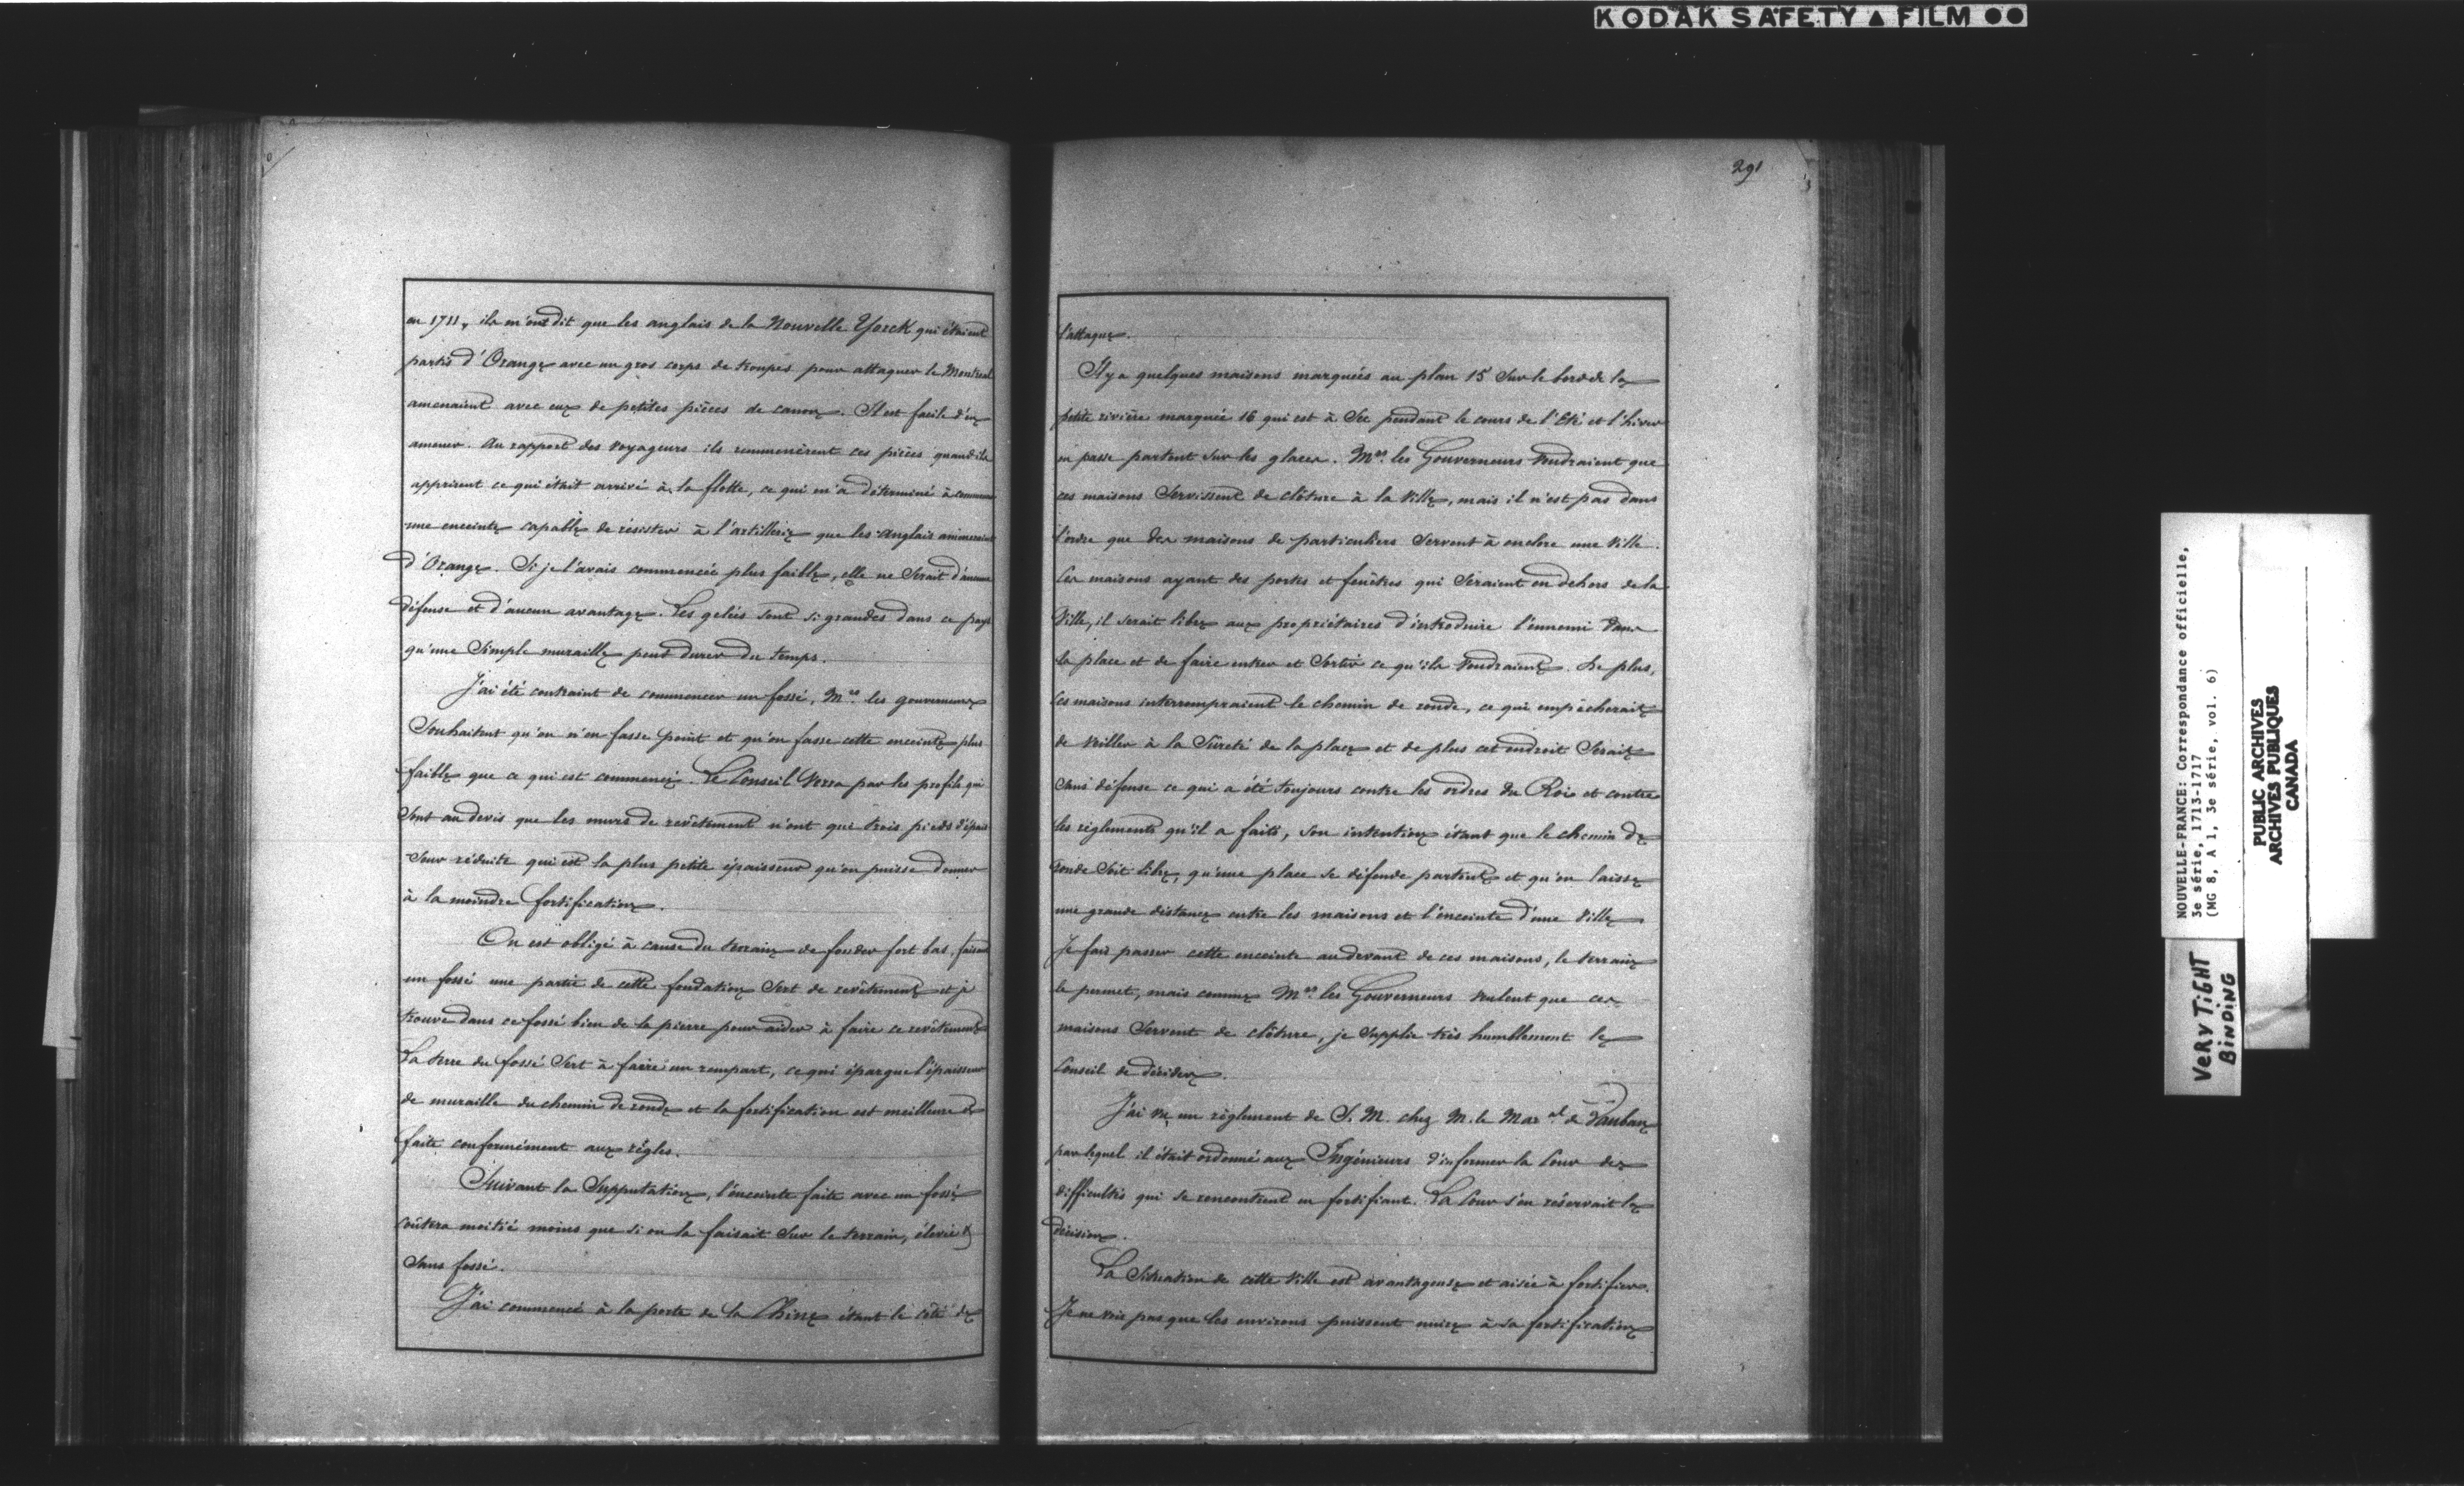 KODAK SAFETY ▲ FILM ●●
en 1711, ils m'ont dit que les anglais de la Nouvelle Yorck qui étaient
partis d'Orange avec un gros corps de troupes pour attaquer le Montreal
amenaient avec eux de petites pièces de canon. Il est facile d'en
amener. Au rapport des voyageurs ils remmenèrent ces pièces quand ils
apprirent ce qui était arrivé à la flotte, ce qui m'a déterminé à
une enceinte capable de résister à l'artillerie que les Anglais amèneraient
d'Orange. Si je l'avais commencée plus faible, elle ne serait d'aucune
défense et d'aucun avantage. Les gelées sont si grandes dans ce pays
qu'une Simple muraille peut durer du temps.
J'ai été contraint de commencer un fossé, Mrs. les gouverneurs
Souhaitent qu'on n'en fasse point et qu'on fasse cette enceinte plus
faible que ce qui est commencé. Le Conseil verra par les profils qui
Sont au devis que les murs de revêtement n'ont que trois pieds d'épais-
seur réduite qui est la plus petite épaisseur qu'on puisse donner
à la moindre fortification.
On est obligé à cause du terrain de fonder fort bas, faisant
un fossé une partie de cette fondation Sert de revêtement et je
trouve dans ce fossé bien de la pierre pour aider à faire ce revêtement
La terre du fossé Sert à faire un rempart, ce qui épargne l'épaisseur
de muraille du chemin de ronde et la fortification est meilleure et
faite conformément aux règles.
Suivant la Supputation, l'enceinte faite avec un fossé
coûtera moitié moins que si on la faisait Sur le terrain, élevée &
Sans fossé.
J'ai commencé à la porte de la Chine étant le côté de
291
l'attaque.
Il y a quelques maisons marquées au plan 15 Sur le bord de la
petite rivière marquée 16 qui est à Sec pendant le cours de l'Eté et l'hiver
on passe partout sur les glaces. Mrs. les Gouverneurs voudraient que
ces maisons Servissent de clôture à la Ville, mais il n'est pas dans
l'ordre que des maisons de particuliers Servent à enclore une Ville.
Ces maisons ayant des portes et fenêtres qui Seraient en dehors de la
Ville, il serait libre aux propriétaires d'introduire l'ennemi dans
la place et de faire entrer et Sortir ce qu'ils voudraient. De plus,
ces maisons interrompraient le chemin de ronde, ce qui empêcherait
de veiller à la Sûreté de la place et de plus cet endroit Serait
Sans défense ce qui a été toujours contre les ordres du Roi et contre
les règlements qu'il a faits, Son intention étant que le chemin de
ronde Soit libre, qu'une place se défende partout et qu'on laisse
une grande distance entre les maisons et l'enceinte d'une Ville
Je fais passer cette enceinte au devant de ces maisons, le terrain
le permet, mais comme Mrs. les Gouverneurs veulent que ces
maisons Servent de clôture, je Supplie très humblement le
Conseil de décider.
J'ai vu un règlement de S. M. chez M. le Maral. de Vauban
par lequel il était ordonné aux Ingénieurs d'informer la Cour des
difficultés qui se rencontrent en fortifiant. La Cour s'en réservait la
décision.
La Situation de cette Ville est avantageuse et aisée à fortifier.
Je ne vois pas que les environs puissent nuire à sa fortification
NOUVELLE-FRANCE: Correspondance officielle,
3e série, 1713-1717
(MG 8, A 1, 3e série, vol. 6)
PUBLIC ARCHIVES
ARCHIVES PUBLIQUES
CANADA
VERY TIGHT
BINDING